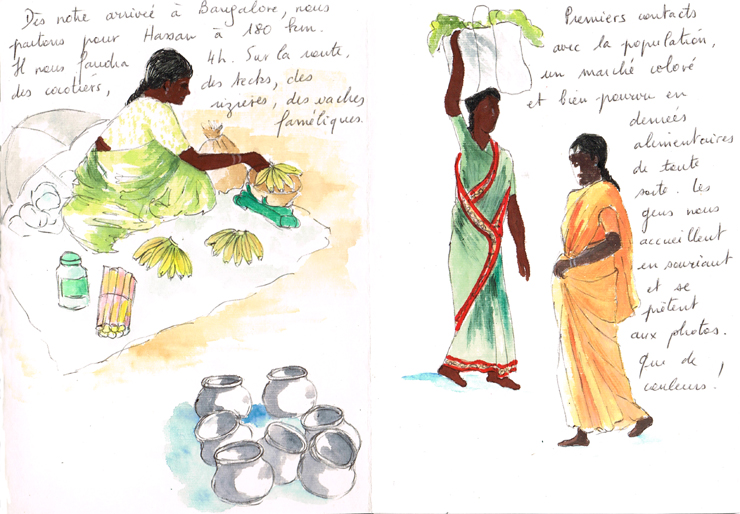 Dès notre arrivée à Bangalore, nous
partons pour Hassan à 180 km.
Il nous faudra 4h. Sur la route,
des cocotiers, des tecks, des
rizières, des vaches
faméliques.
Premiers contacts
avec la population,
un marché coloré
et bien pourvu en
denrées
alimentaires
de toute
sorte. Les
gens nous
accueillent
en souriant
et se
prêtent
aux photos.
Que de
couleurs !